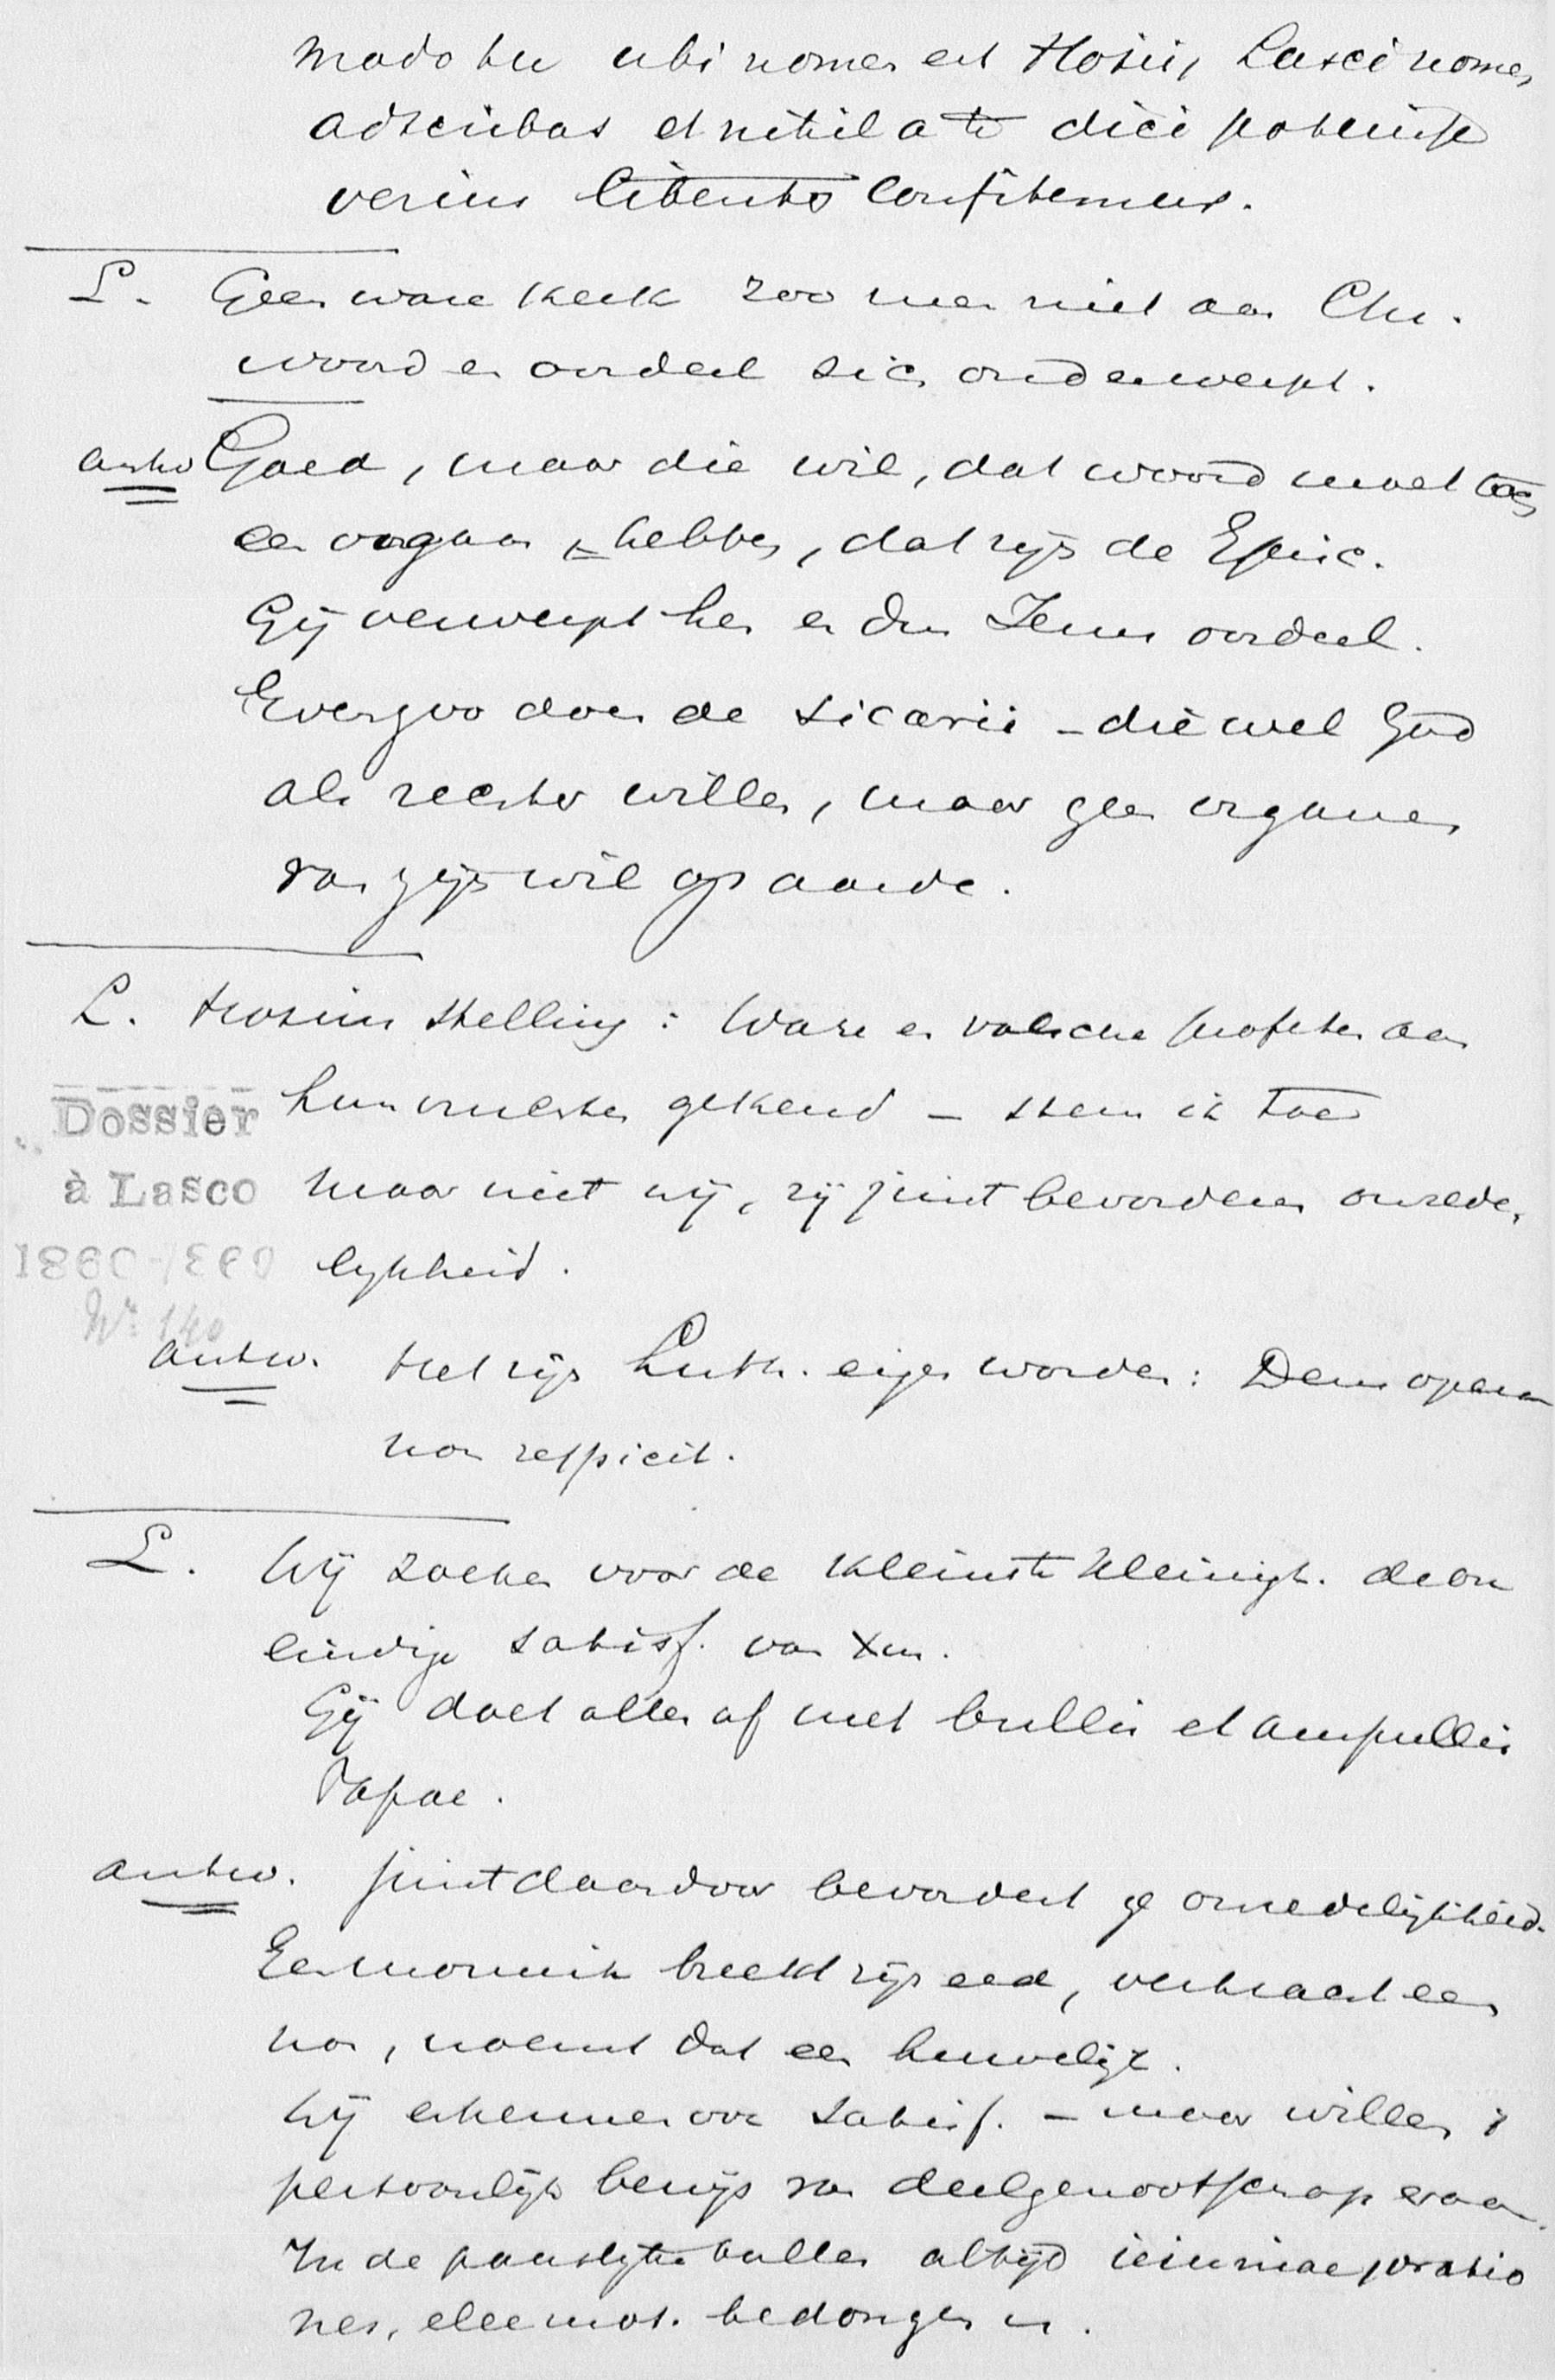 modo tu ubi nomen est Hosii, Lasci nomen
adscribas et nihil a te dici potuisse
verius libenter confitemur.
L. Geen ware kerk zoo men niet aan Chr.
woord en oordeel zich onderwerpt.
antw Goed, maar die wil, dat woord moet toch
een orgaan hebben, dat zijn de Episc.
Gij verwerpt hen en dus Jesus oordeel.
Evenzoo doen de sicarii - die wel God
als rechter willen, maar geen organen
van zijn wil op aarde.
L. Hosius stelling: Ware en valsche profeten aan
Dossier
hun vruchten gekend - stem ik toe
à Lasco
maar niet wij, zij juist bevorderen onzede-
1860-/
lijkheid.
Nr. 140
antw. Het zijn Luth. eigen woorden: Deus opera
non respicit.
L. Wij zoeken voor de kleinste kleinigh. de on
eindige satisf. van Xus.
Gij doet alles af met bullis et ampullis
Papae.
antw. juist daardoor bevordert ge onzedelijkheid.
Een monnik breekt zijn eed, verkracht een
non, noemt dat een huwelijk.
Wij erkennen ook satisf. - maar willen
persoonlijk bewijs van deelgenootschap eraan.
In de pauselijke bullen altijd ieiuniae, oratio
nes, eleemos. bedongen.